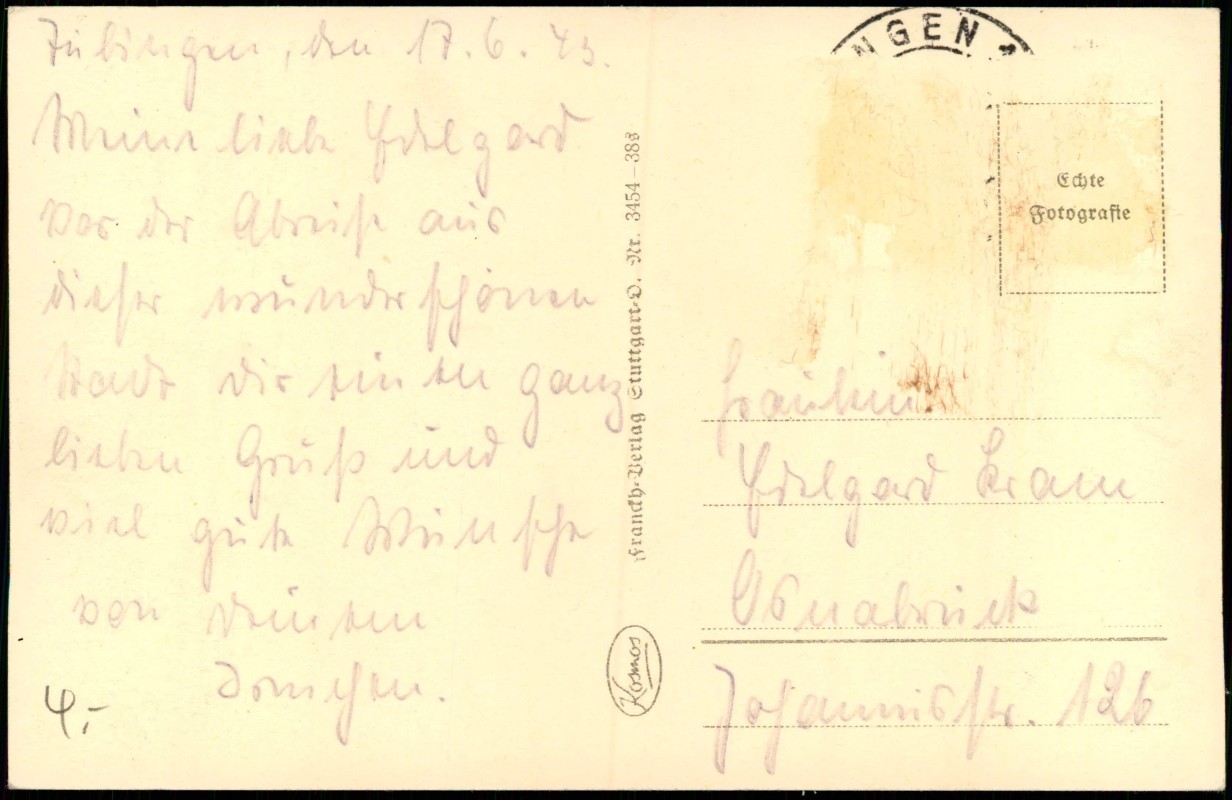 Tübingen, den 17. 6. 43.
Meine liebe Edelgard
vor der Abreise aus
dieser wunderschönen
Stadt dir einen ganz
lieben Gruß und
viel gute Wünsche
von deinem
4,-
Franckh-Verlag Stuttgart-O. Nr. 3454-388
Kosmos
NGEN
Echte
Fotografie
Fräulein
Edelgard
Osnabrück
Johannisstr. 126